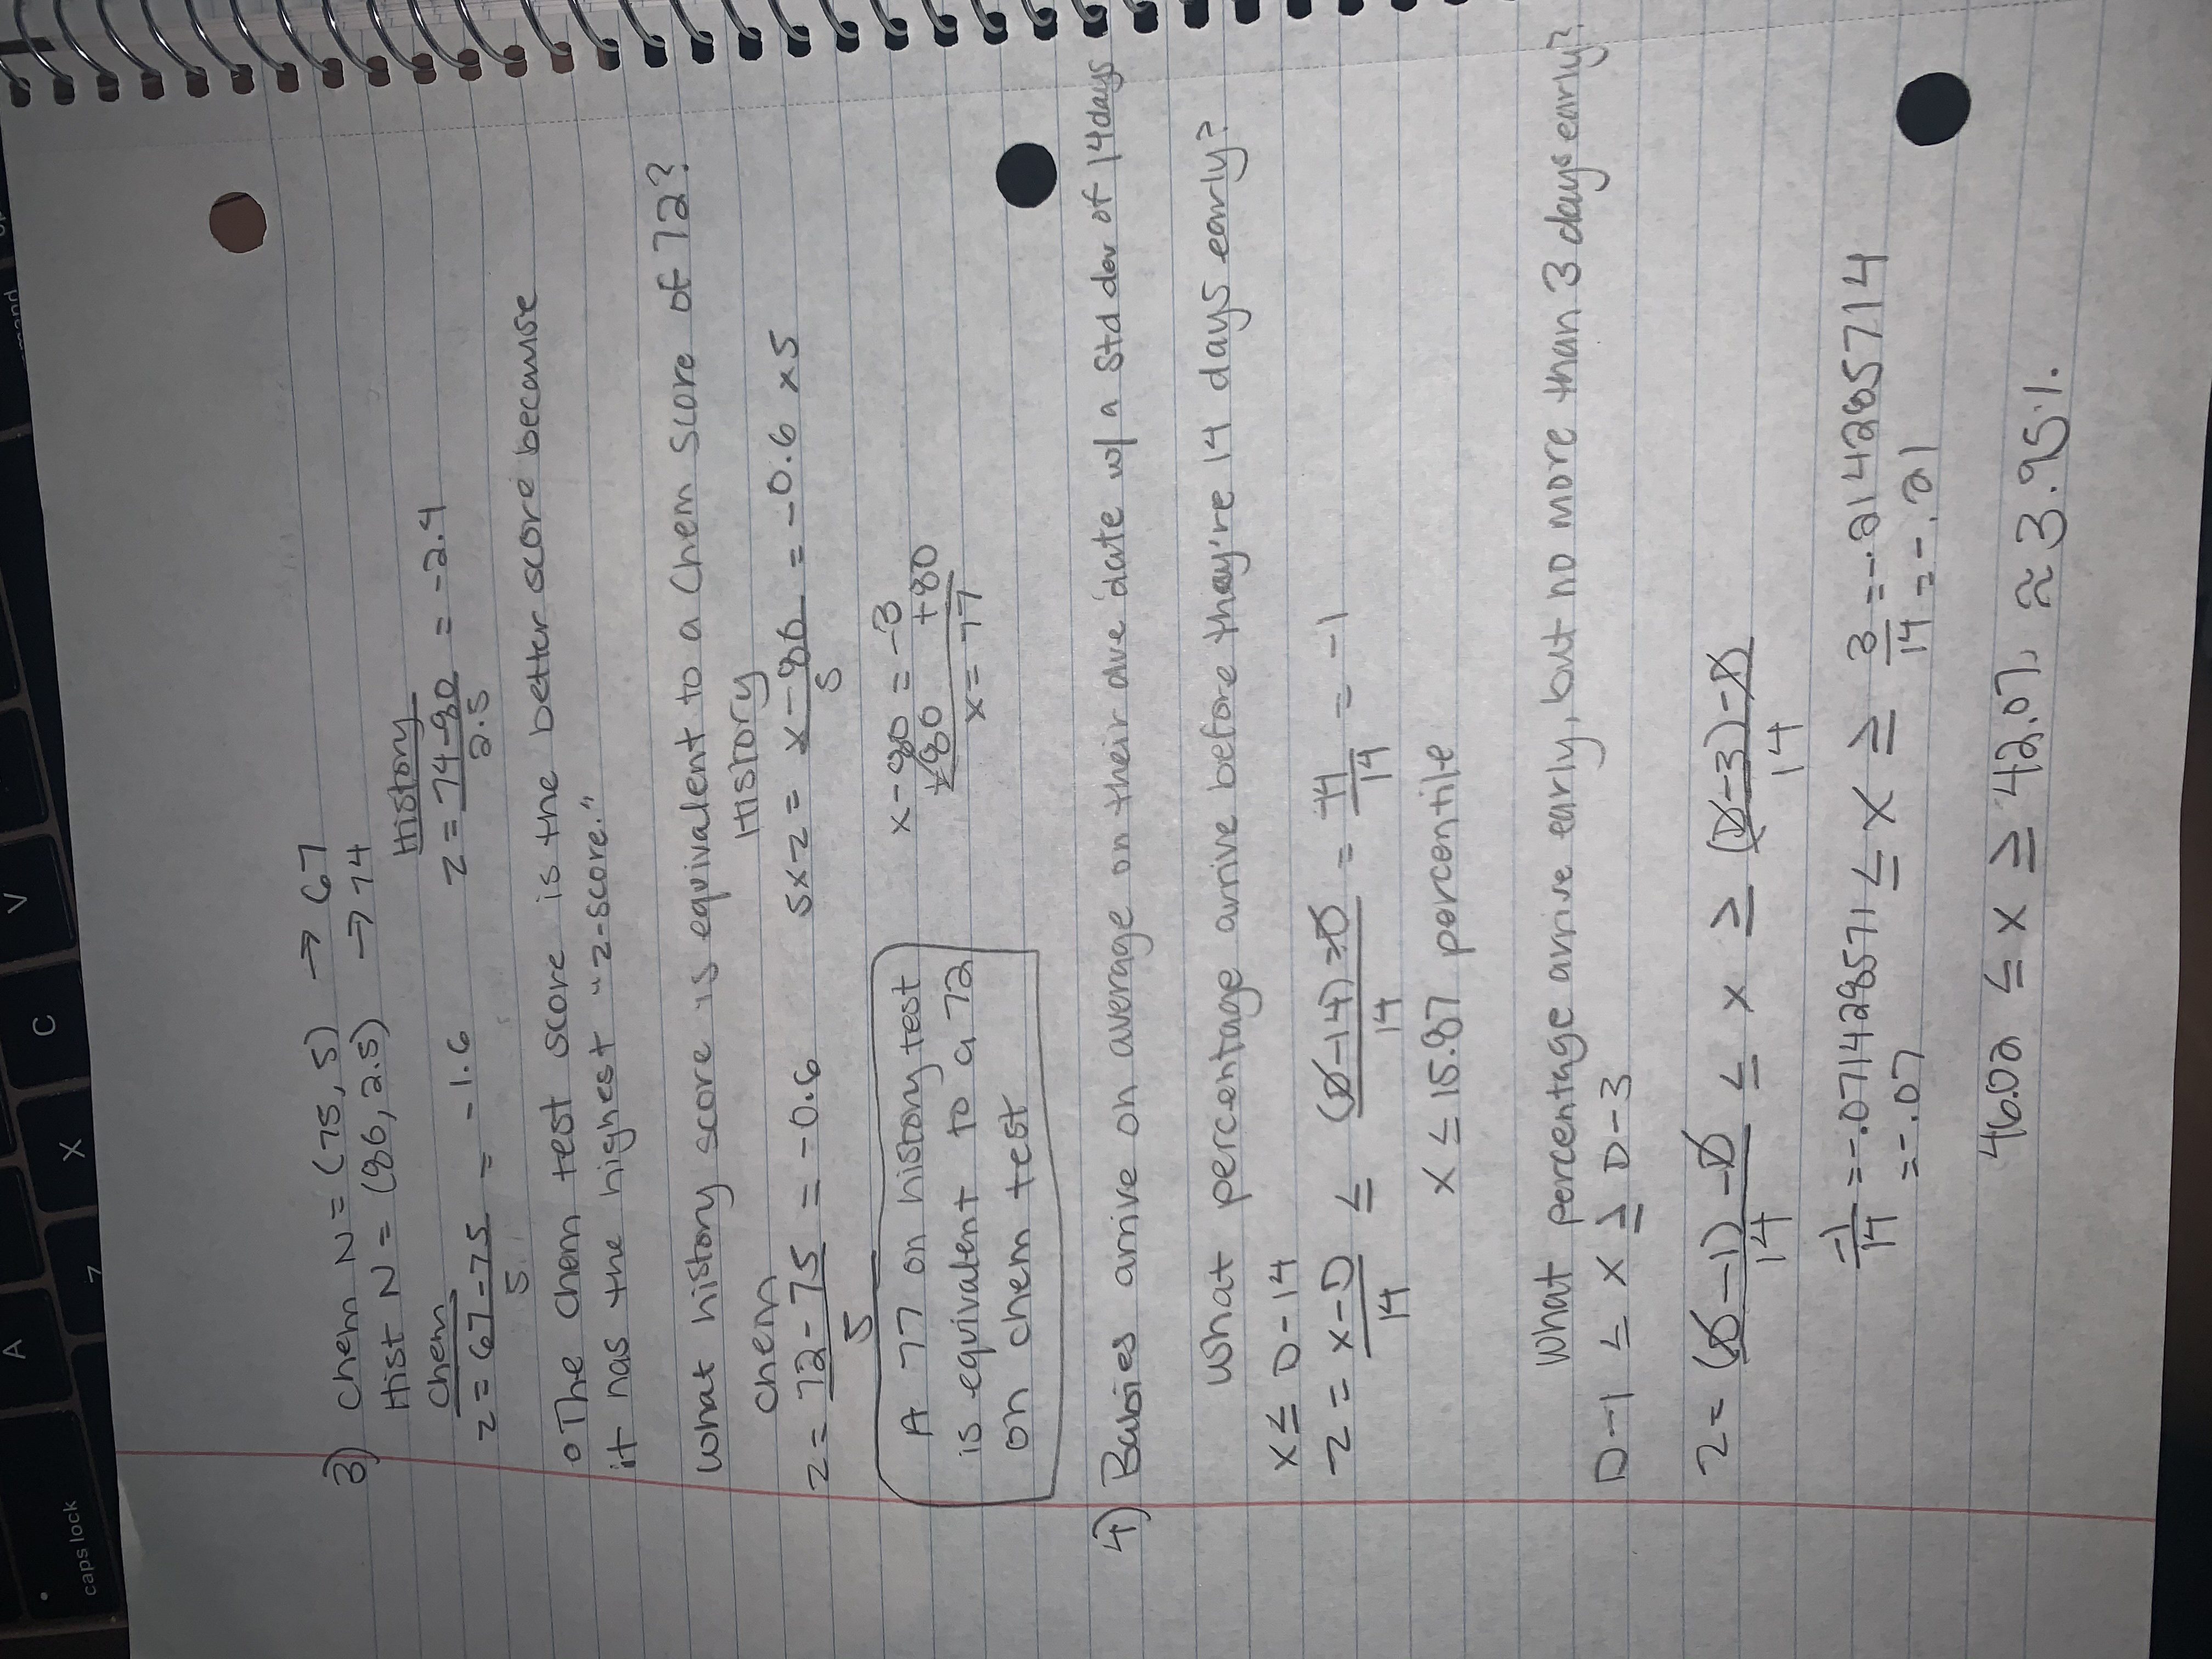 3) Chem N=(75,5) → 67
Hist N=(86,2.5) → 74
Chem History
z = 67-75 / 5 = -1.6 z = 74-80 / 2.5 = -2.4
o The Chem test score is the better score because
it has the highest "z-score."
What history score is equivalent to a Chem score of 72?
Chem History
z = 72-75 / 5 = -0.6 5xz = x-80 / 5 = -0.6 x5
x-80 = -3
+80 +80
x = 77
A 77 on history test
is equivalent to a 72
on chem test
4) Babies arrive on average on their due date w/ a std dev of 14 days
What percentage arrive before they're 14 days early?
x ≤ D-14
z = x-D / 14 ≤ (D-14)-D / 14 = -14 / 14 = -1
x ≤ 15.87 percentile
What percentage arrive early, but no more than 3 days early?
D-1 ≤ x ≥ D-3
z = (D-1)-D / 14 ≤ x ≥ (D-3)-D / 14
-1 / 14 = -.071428571 ≤ x ≥ 3 / 14 = -.214285714
= -.07 = -.21
46.02 ≤ x ≥ 42.07% ≈ 3.95%
caps lock
A
Z
X
C
V